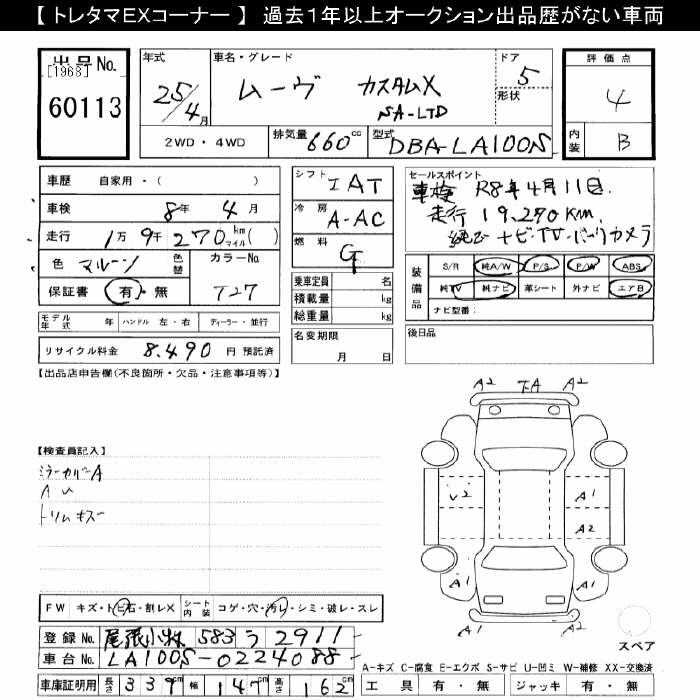 【 トレタマEXコーナー 】 過去1年以上オークション出品歴がない車両
出品No. [1968] 60113
年式 25/4月
車名・グレード ムーヴ カスタムX SA-LTD
ドア 5
形状
評価点 4
内装 B
2WD・4WD
排気量 660cc
型式 DBA-LA100S
車歴 自家用・( )
車検 8年 4月
走行 1万 9千 270 km マイル ( )
色 マルーン 色替 カラーNo. T27
保証書 有・無
モデル年式 年 ハンドル 左・右 ディーラー・並行
リサイクル料金 8,490 円 預託済
シフト IAT
冷房 A-AC
燃料 G
乗車定員 名
積載量 kg
総重量 kg
名変期限 月 日
セールスポイント
車検 R8年4月11日
走行 19,270Km
純正ナビTV・バックカメラ
装備品 S/R 純A/W P/S P/W ABS
純TV 純ナビ 革シート 外ナビ エアB
ナビ型番:
後日品
【出品店申告欄(不良箇所・欠品・注意事項等)】
【検査員記入】
ミラーカバーA
A U
トリムキズ
A2 A2
U2 A1
A2
A1 A1
スペア
FW キズ・トビ石・割レX シート内装 コゲ・穴・汚レ・シミ・破レ・スレ
登録No. 尾張小牧 583 う 2911
車台No. LA100S-0224088
車庫証明用 長さ 339cm 幅 147cm 高さ 162
A-キズ C-腐食 E-エクボ S-サビ U-凹ミ W-補修 XX-交換済
工具 有・無 ジャッキ 有・無